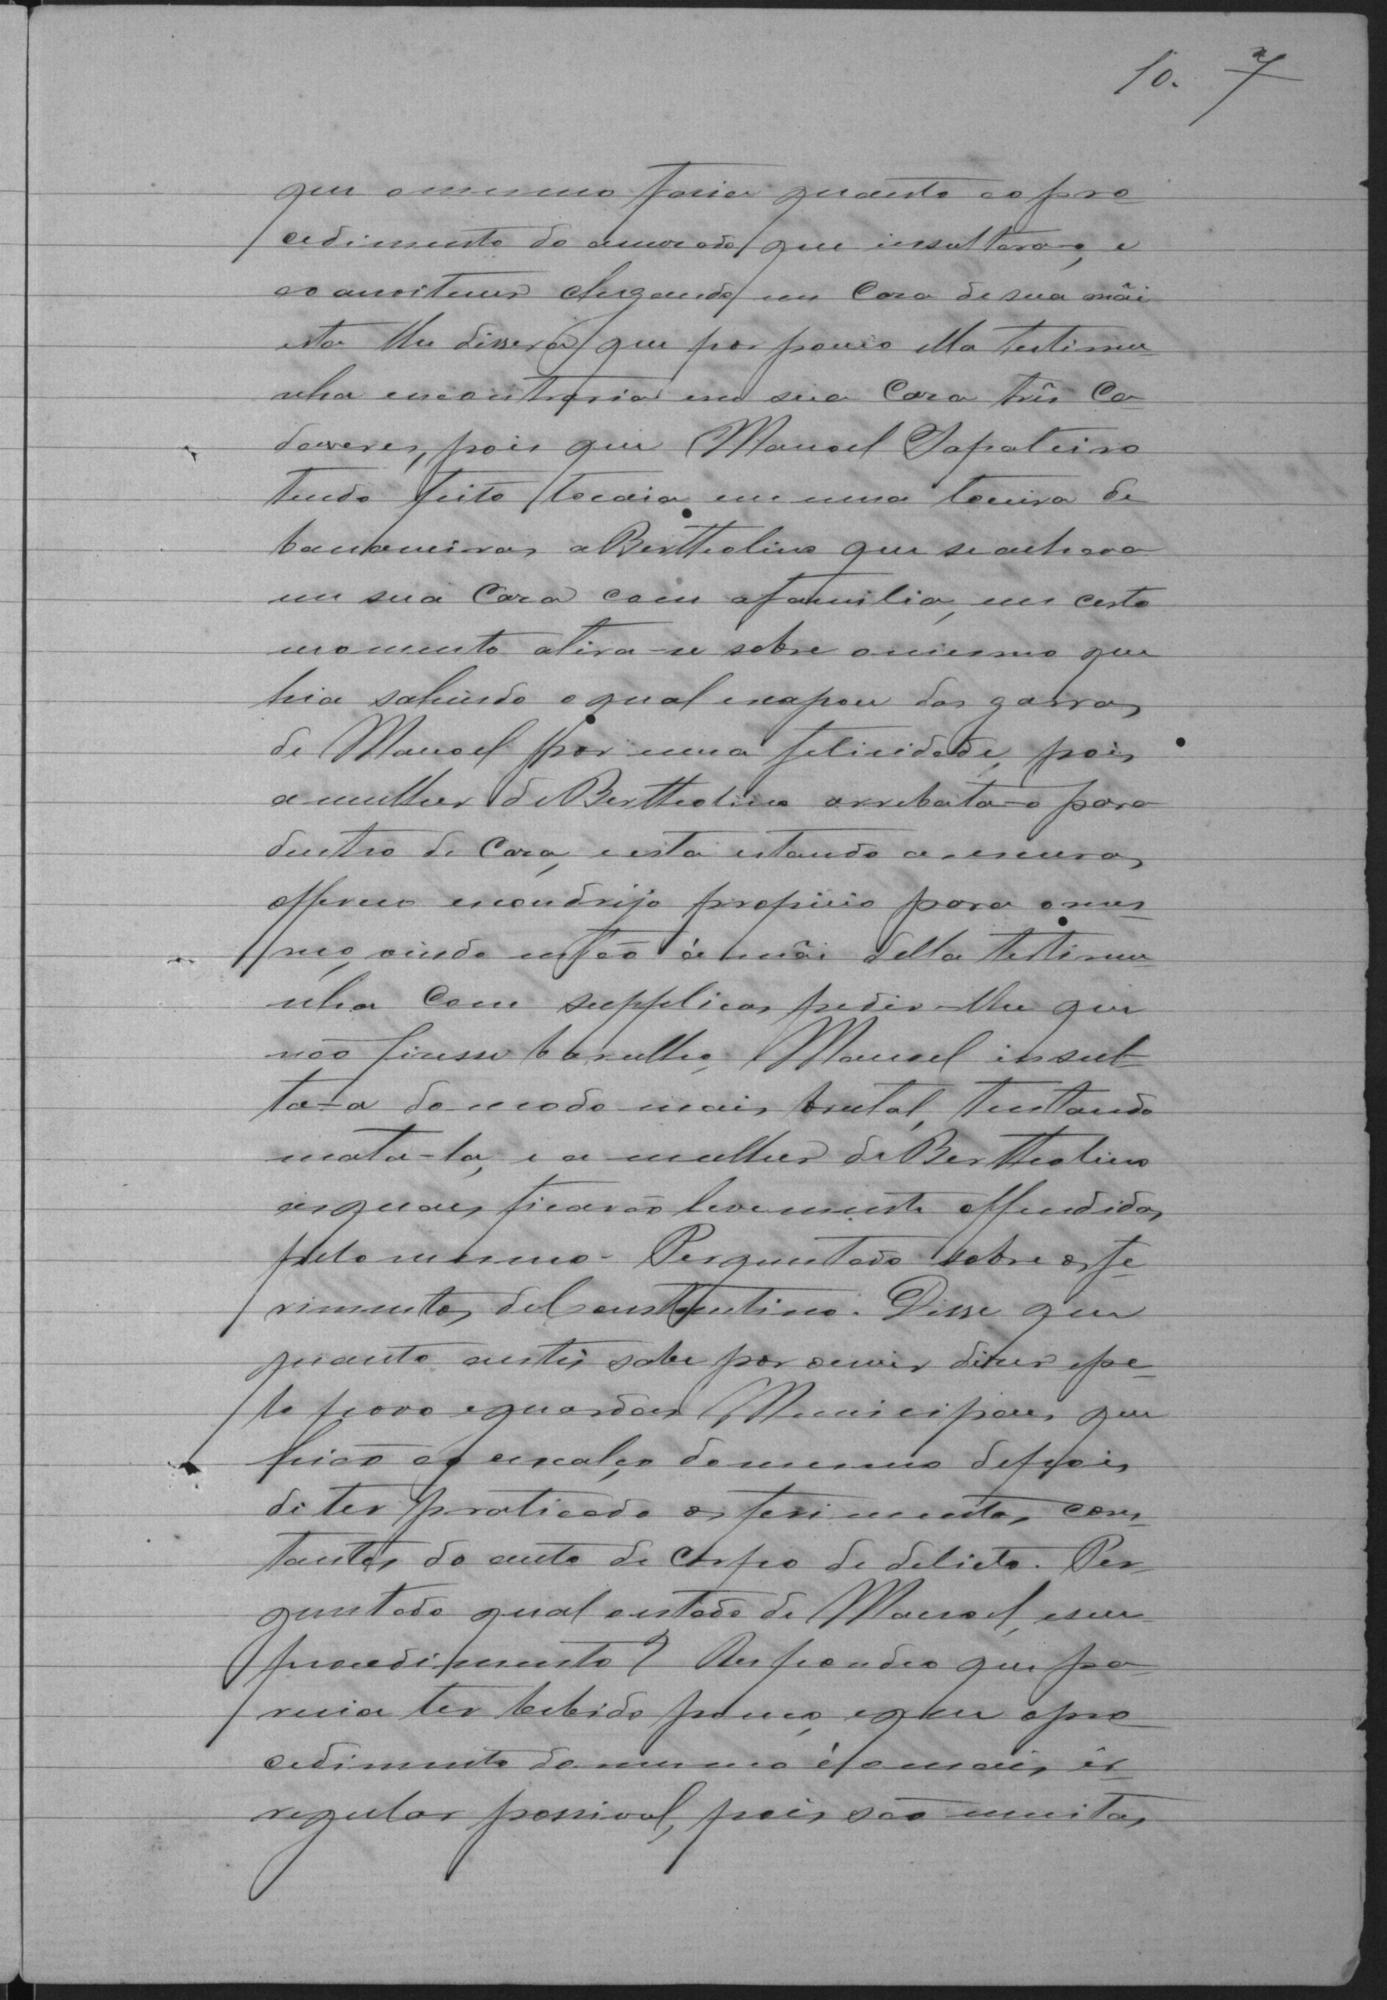 10. 7
que o mesmo fazia quanto ao pro
cedimento do amorado que insultara-o, e
ao anoitecer chegando em Caza de sua mãi
esta lhe dissera que por pouco ella testimu
nha encontraria em sua Caza três Ca
daveres, pois que Manoel Sapateiro
tendo feito tocaia em uma toceira de
bananeiras a Bertholino que se achava
em sua Caza com a familia, em certo
momento atira-se sobre o mesmo que
hia sahindo o qual escapou das garras
de Manoel por uma felicidade, pois
a mulher de Bertholino arrebata-o para
dentro de Caza, e esta estando as escuras
offereceo escondrijo propicio para o mes-
mo, vindo então á mãi della testimu
nha com supplicas pedir-lhe que
não fizesse barulho, Manoel insul-
ta-a do modo mais brutal, tentando
mata-la, e a mulher de Bertholino
as quaes ficarão levemente offendidas
pelo mesmo. Perguntado sobre os fe-
rimentos de Constantino. Disse que
quanto a estes sabe por ouvir dizer pe-
lo povo e guardas Municipaes que
hião ao encalço do mesmo depois
de ter praticado os ferimentos cons-
tantes do auto de corpo de delicto. Per-
guntado qual o estado de Manoel, e seu
procedimento? Respondeo que pa-
recia ter bebido pouco, e que o pro-
cedimento do mesmo é o mais ir-
regular possivel, pois são muitas